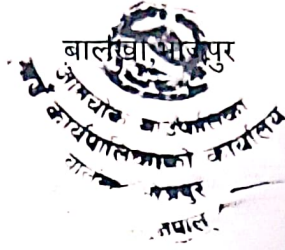 बालंखा, भोजपुर
आमचोक गाउँपालिका
गाउँ कार्यपालिकाको कार्यालय
भोजपुर
नेपाल